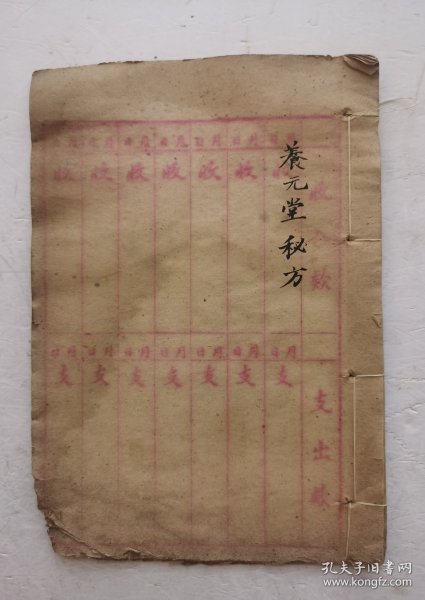 養元堂秘方
收入款
月日 月日 月日 月日 月日 月日 月日
收 收 收 收 收 收 收
支出款
月日 月日 月日 月日 月日 月日 月日
支 支 支 支 支 支 支
孔夫子旧书网
www.kongfz.com